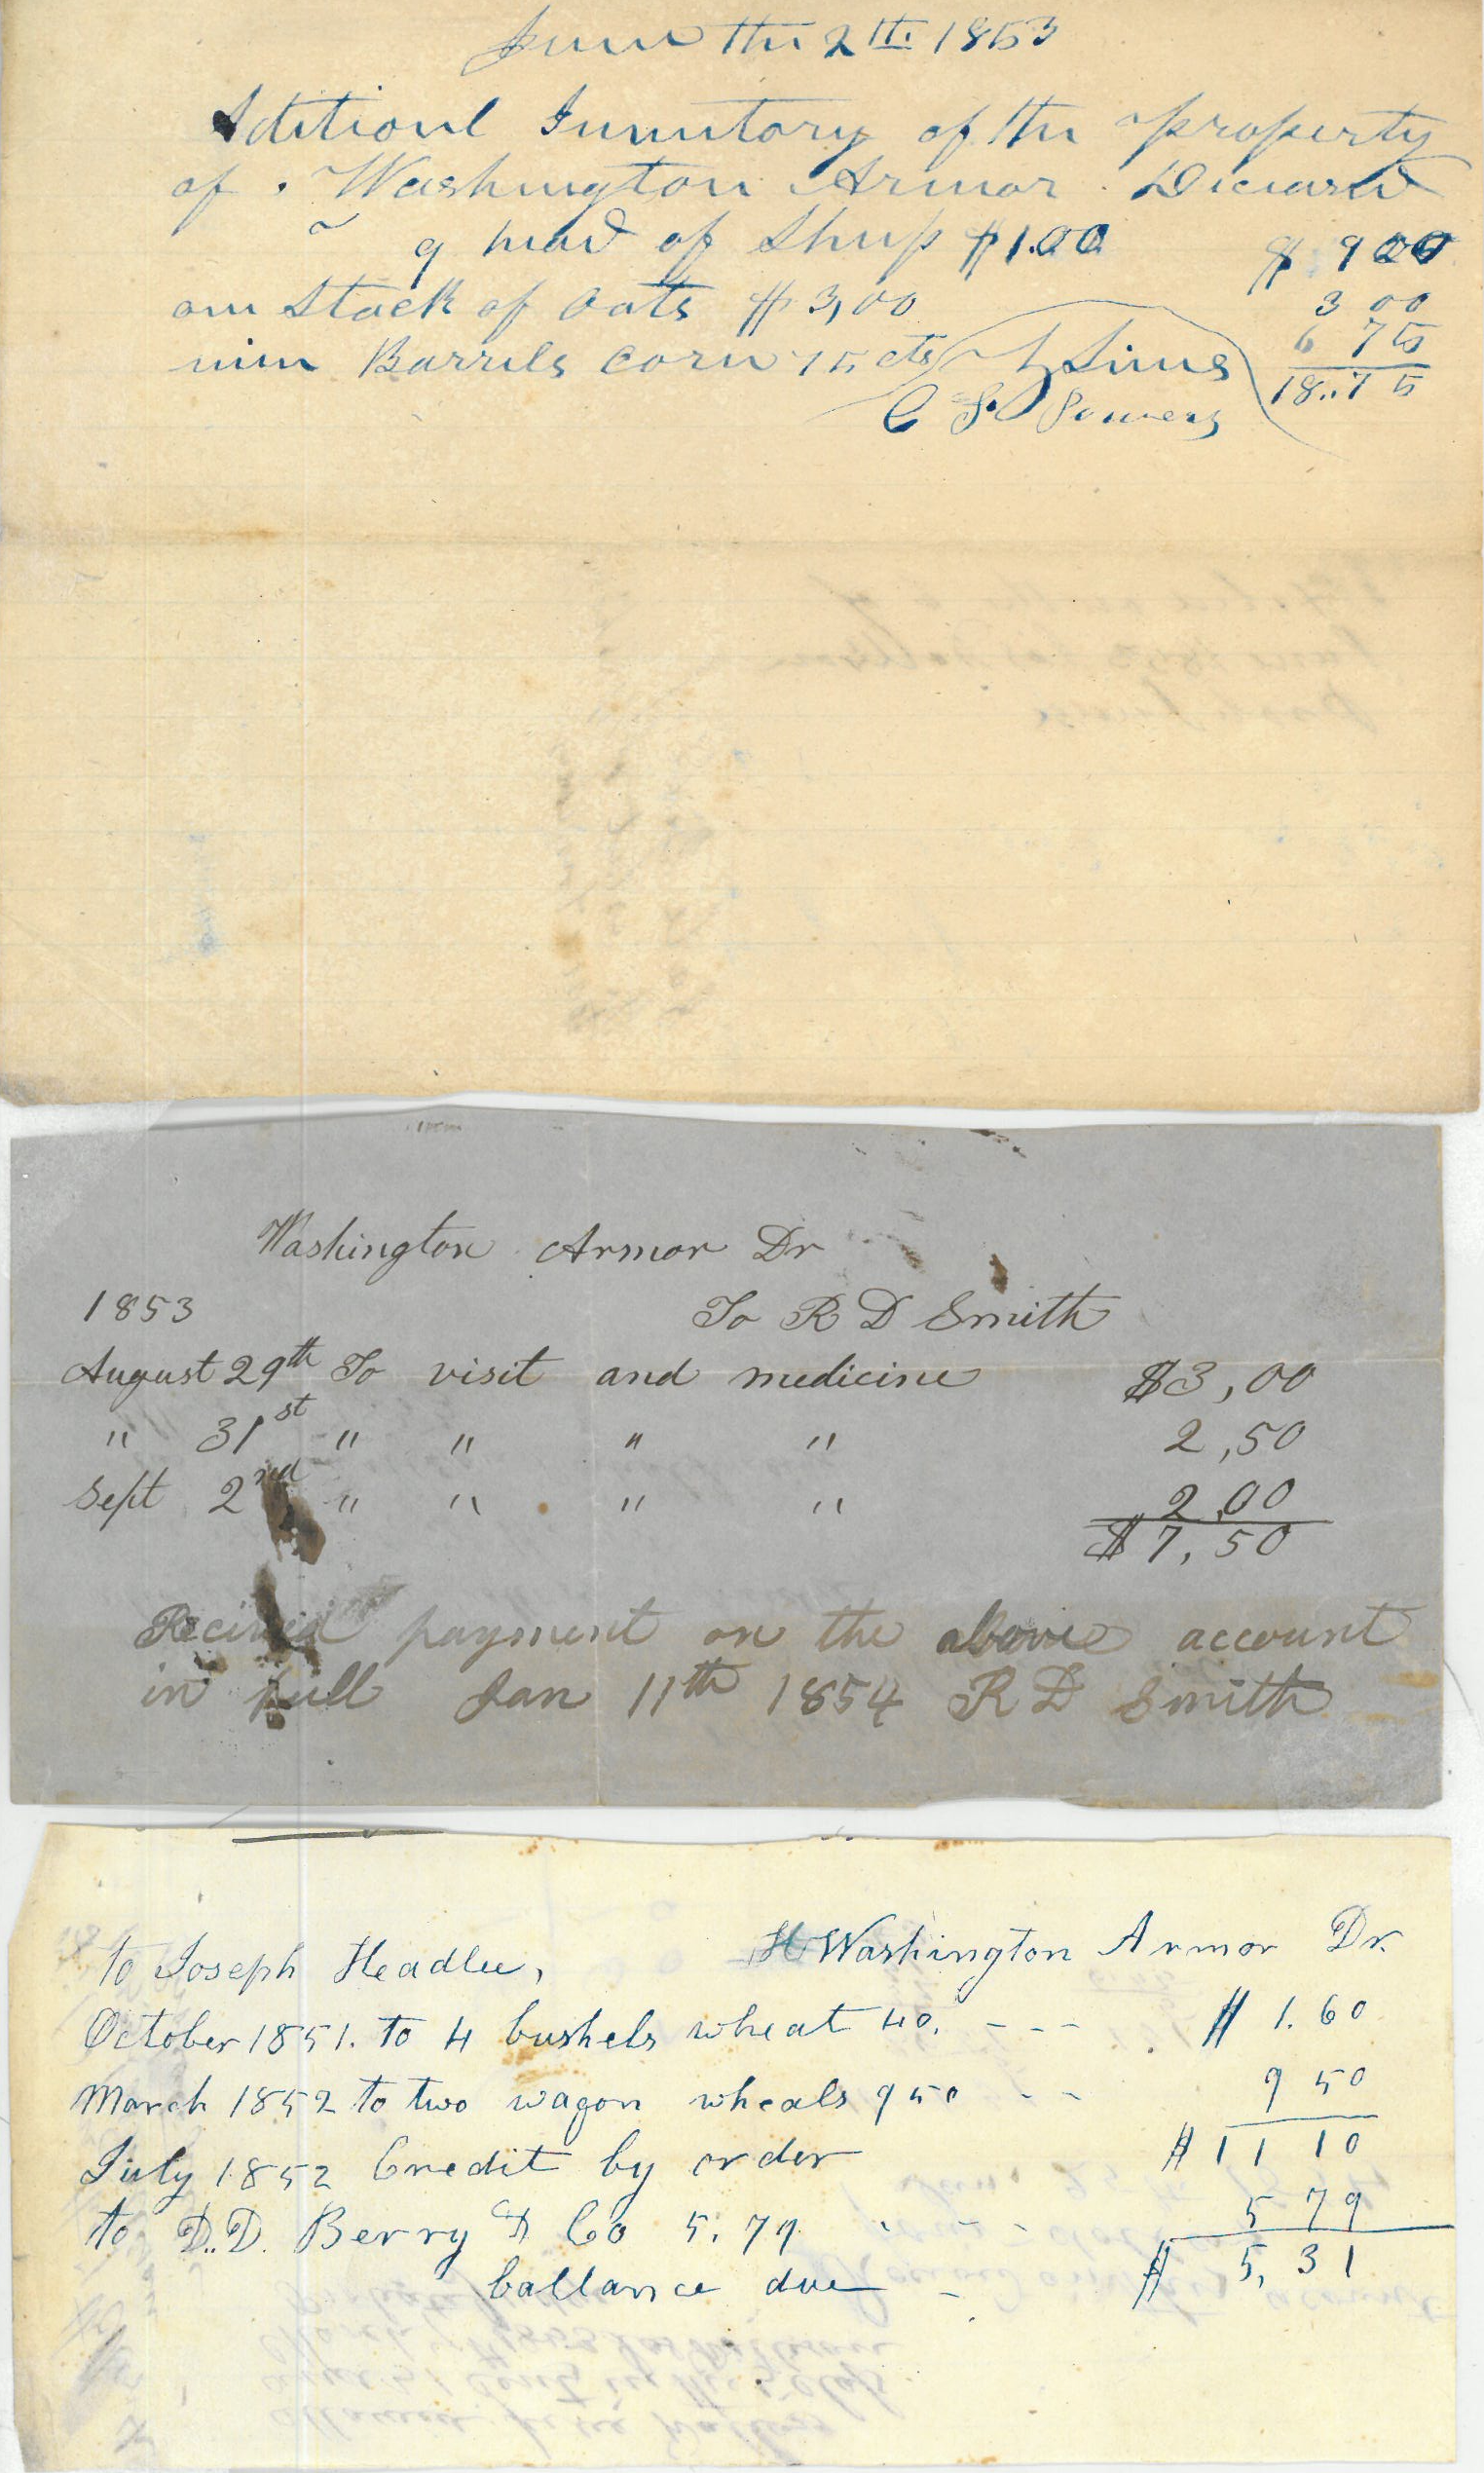 June the 2th 1853
Aditionl Inventory of the property
of Washington Armor Deceasd
9 head of Sheep $1.00 $ 9 00
one Stack of oats $3,00 3 00
nine Barrels corn 75 cts 6 75
18..75
Sims
C S Sowers
Washington Armor Dr
1853 To R D Smith
August 29th To visit and medicine $3,00
" 31st " " " " 2,50
Sept 2nd " " " " 2,00
$7,50
Recived payment on the above account
in full Jan 11th 1854 R D Smith
H Washington Armor Dr.
to Joseph Headlee,
October 1851. to 4 bushels wheat 40. - - - $ 1.60
March 1852 to two wagon wheals 950 - - 9 50
$ 11 10
July 1852 Credit by order
to D.D. Berry & Co 5.79 5 79
ballance due - $ 5,31